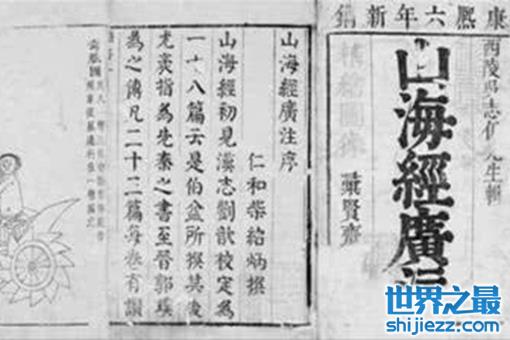 康熙六年新鐫
西陵吳志伊先生輯
山海經廣注
精繪圖像
彙賢齋
山海經廣注序
仁和柴紹炳撰
山海經初見漢志劉歆校定為
一十八篇云是伯益所撰其後
尤袤指為先秦之書至晉郭璞
為之傳凡二十三篇每卷有讚
奇肱國
世界之最
shijiezz.com